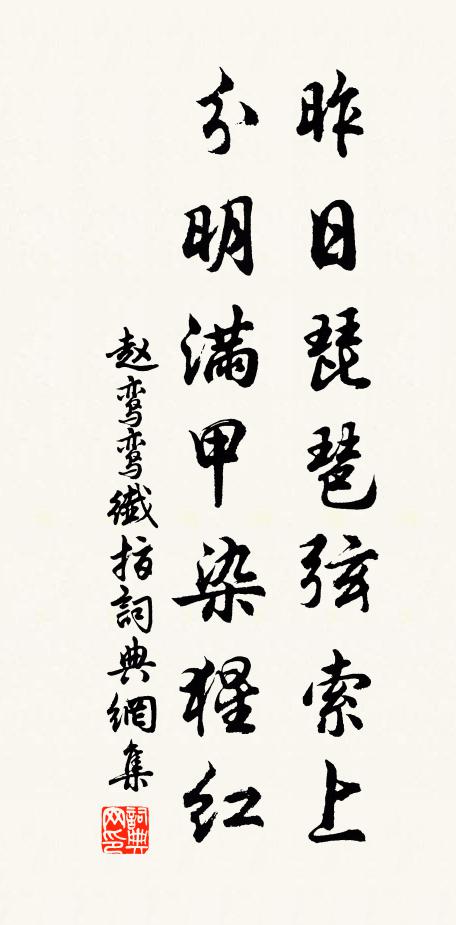 昨日琵琶弦索上
分明满甲染猩红
赵鸾鸾纖指詞典網集
詞典网印